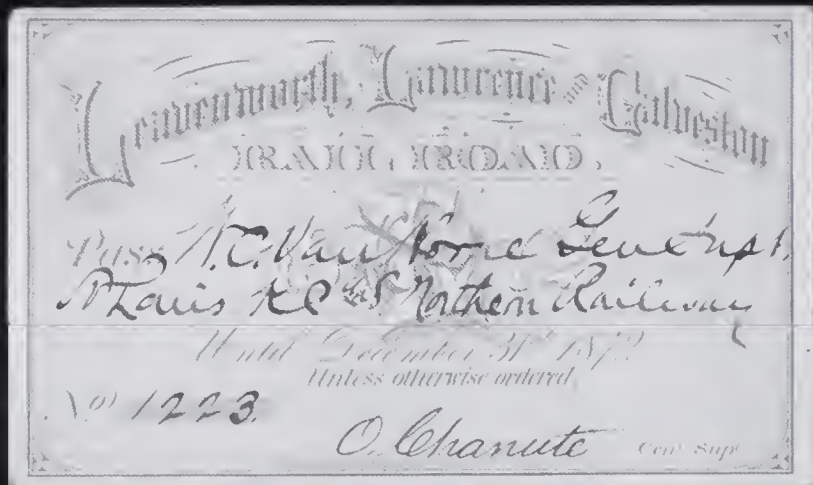 Leavenworth, Lawrence and Galveston
RAIL ROAD.
Pass W.C. Van Horne Genl Supt.
St Louis KC & Northern Railway
Until December 31st 1872
Unless otherwise ordered
No 1223.
O. Chanute Gen. Supt